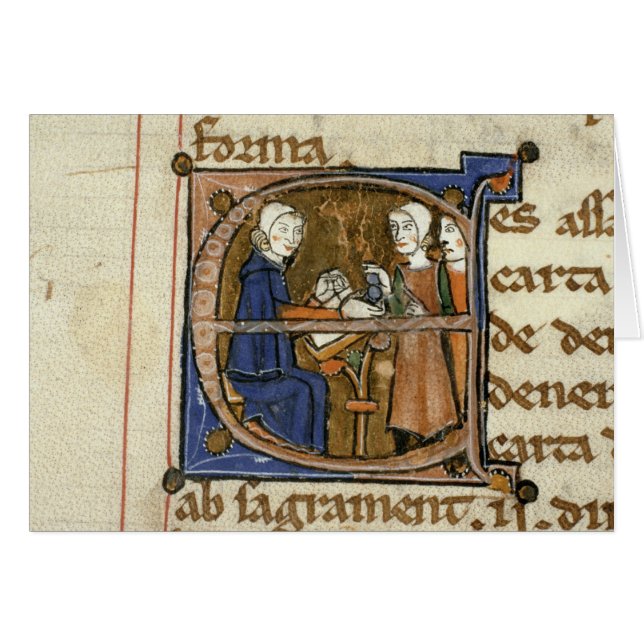 forma.
E es assa
carta
de de
dener
carta d
ab sagrament. ij. di